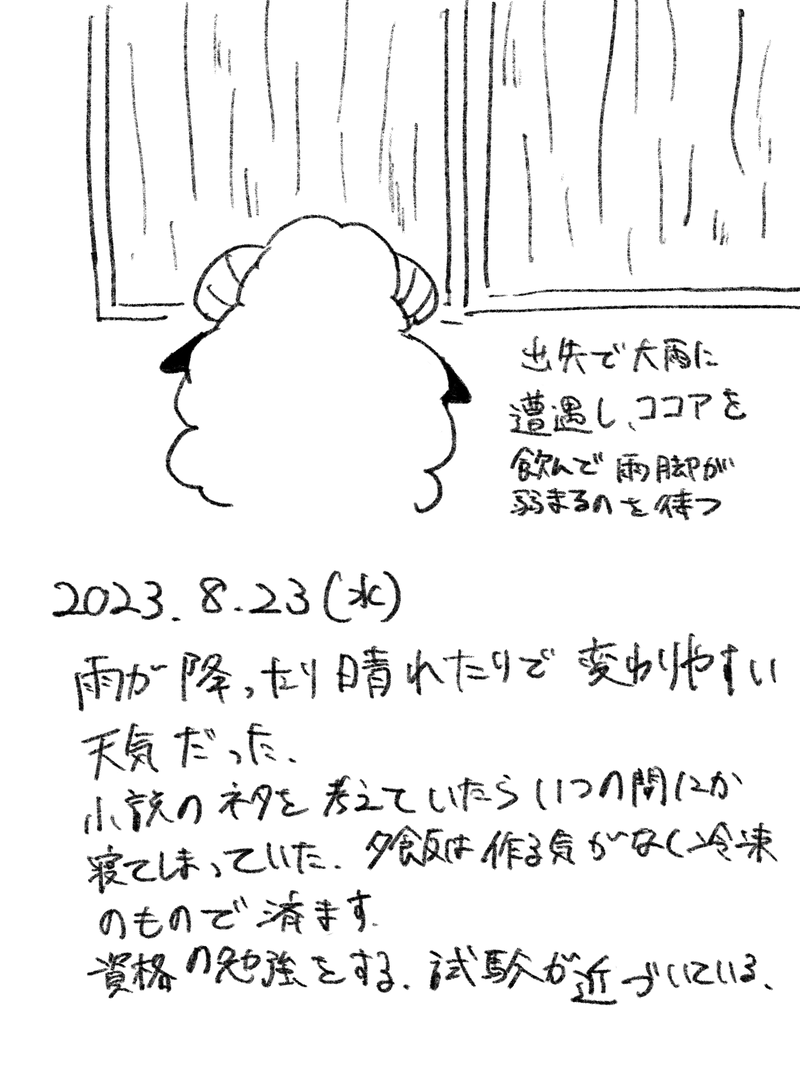 出先で大雨に
遭遇し、ココアを
飲んで雨脚が
弱まるのを待つ
2023.8.23(水)
雨が降ったり晴れたりで変わりやすい
天気だった.
小説のネタを考えていたらいつの間にか
寝てしまっていた.夕飯は作る気がなく冷凍
のもので済ます.
資格の勉強をする.試験が近づいている.